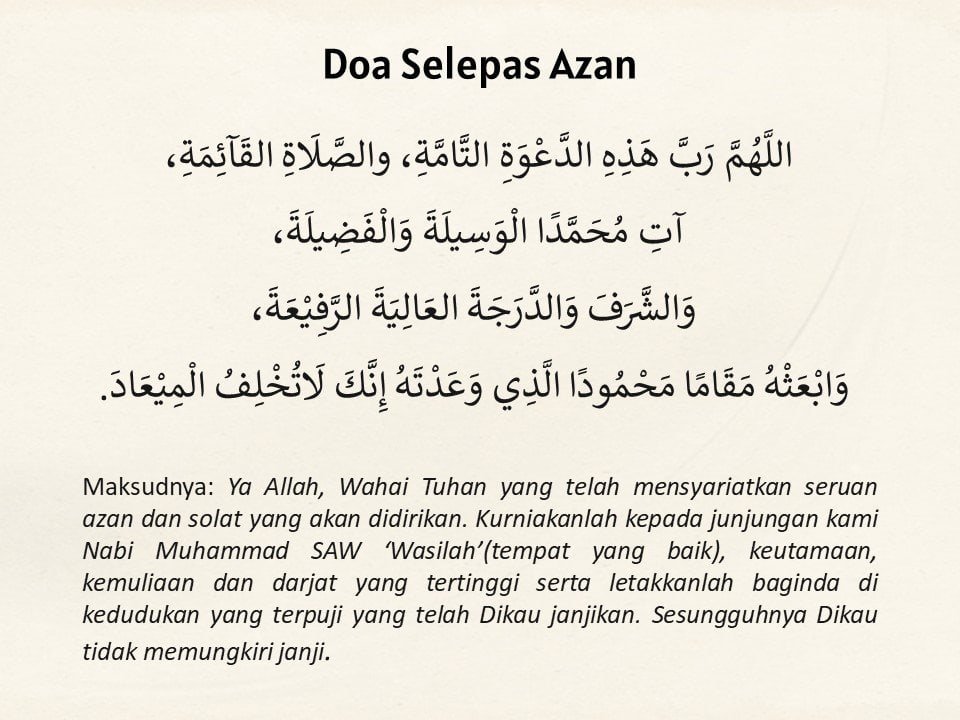 Doa Selepas Azan
اللَّهُمَّ رَبَّ هَذِهِ الدَّعْوَةِ التَّامَّةِ، والصَّلَاةِ القَآئِمَةِ،
آتِ مُحَمَّدًا الْوَسِيلَةَ وَالْفَضِيلَةَ،
وَالشَّرَفَ وَالدَّرَجَةَ العَالِيَةَ الرَّفِيْعَةَ،
وَابْعَثْهُ مَقَامًا مَحْمُودًا الَّذِي وَعَدْتَهُ إِنَّكَ لَاتُخْلِفُ الْمِيْعَادَ.
Maksudnya: Ya Allah, Wahai Tuhan yang telah mensyariatkan seruan
azan dan solat yang akan didirikan. Kurniakanlah kepada junjungan kami
Nabi Muhammad SAW ‘Wasilah’(tempat yang baik), keutamaan,
kemuliaan dan darjat yang tertinggi serta letakkanlah baginda di
kedudukan yang terpuji yang telah Dikau janjikan. Sesungguhnya Dikau
tidak memungkiri janji.